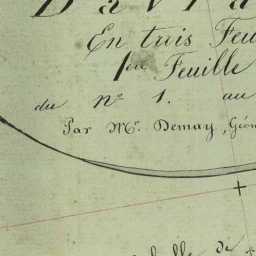 En trois Feu
1ère Feuille
du n° 1. au
Par Mr. Demay, Géom
de